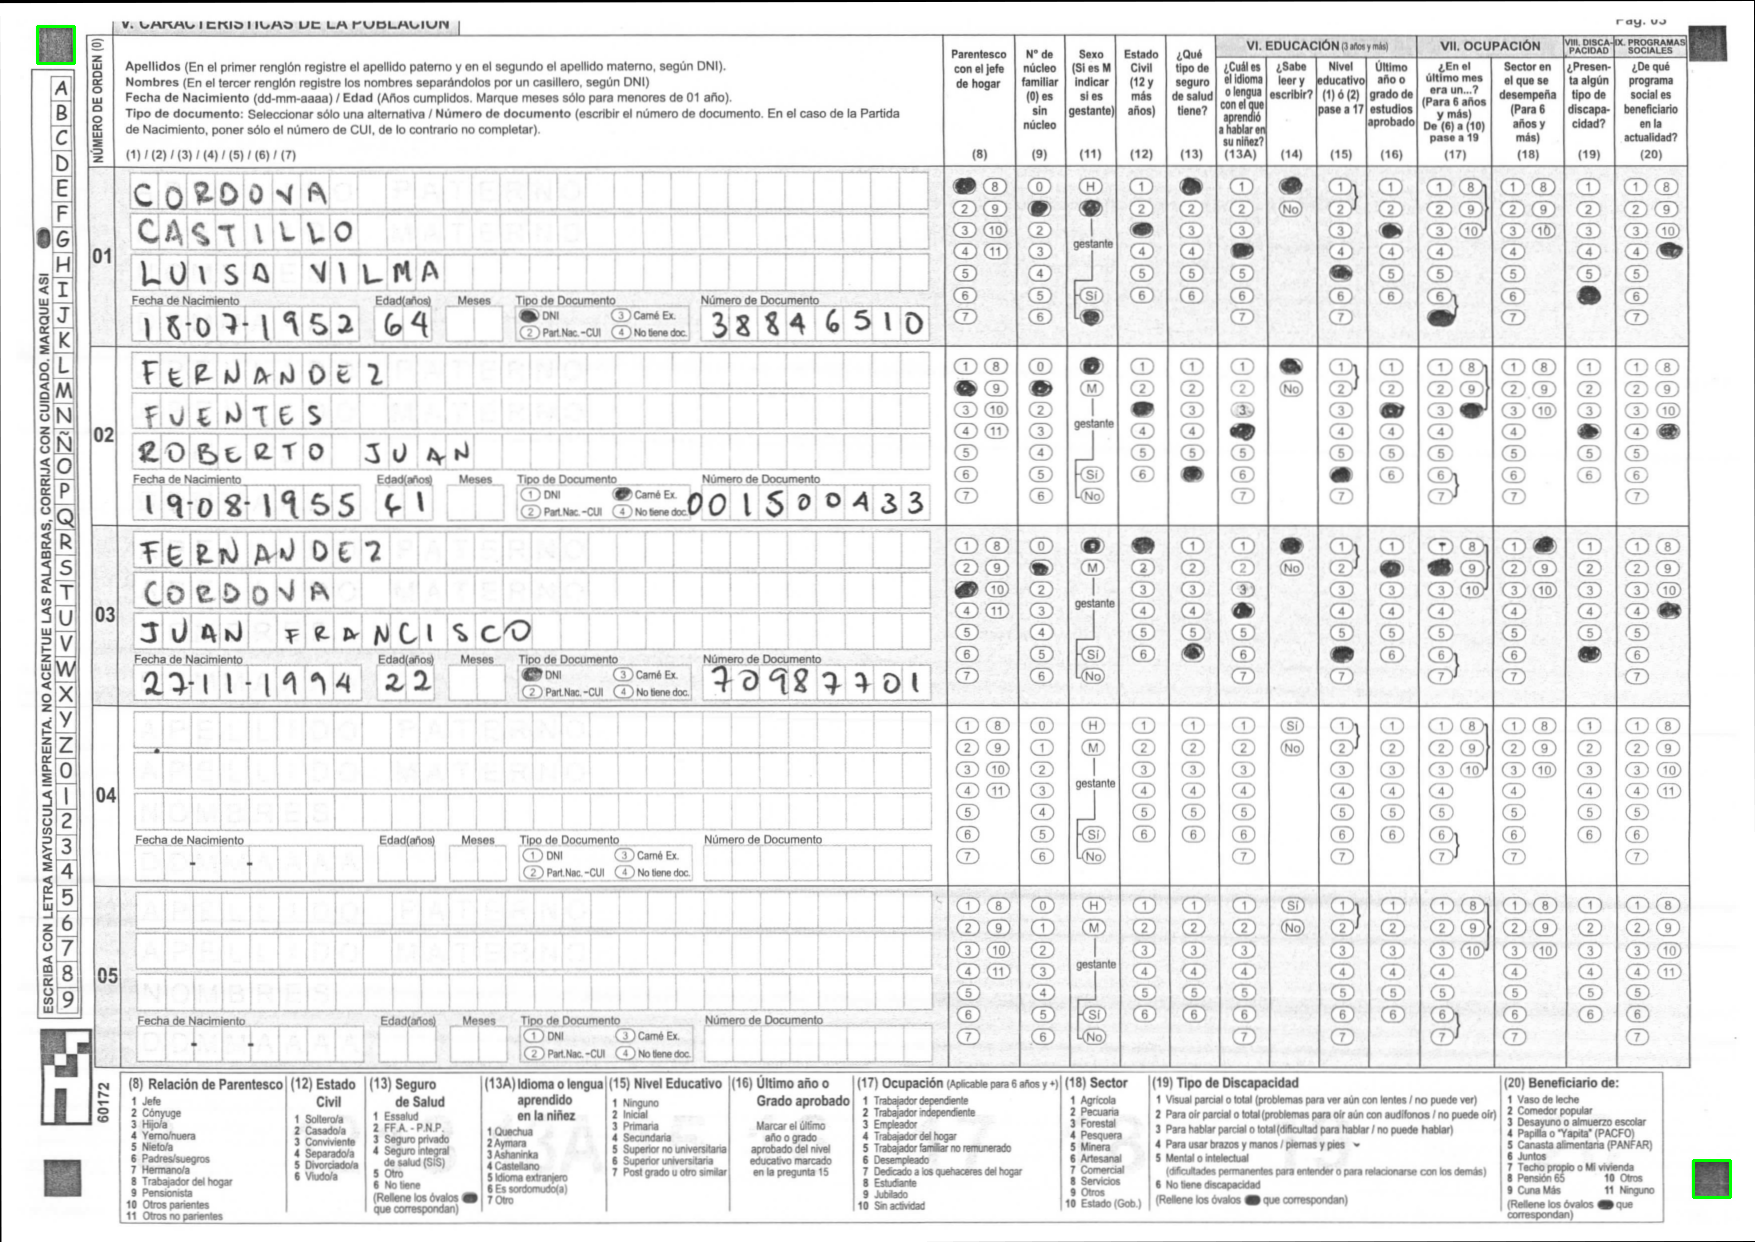 V. CARACTERÍSTICAS DE LA POBLACIÓN
Pag. 03
NÚMERO DE ORDEN (0)
Apellidos (En el primer renglón registre el apellido paterno y en el segundo el apellido materno, según DNI).
Nombres (En el tercer renglón registre los nombres separándolos por un casillero, según DNI)
Fecha de Nacimiento (dd-mm-aaaa) / Edad (Años cumplidos. Marque meses sólo para menores de 01 año).
Tipo de documento: Seleccionar sólo una alternativa / Número de documento (escribir el número de documento. En el caso de la Partida
de Nacimiento, poner sólo el número de CUI, de lo contrario no completar).
(1) / (2) / (3) / (4) / (5) / (6) / (7)
Parentesco con el jefe de hogar (8)
N° de núcleo familiar (0) es sin núcleo (9)
Sexo (Si es M indicar si es gestante) (11)
Estado Civil (12 y más años) (12)
¿Qué tipo de seguro de salud tiene? (13)
VI. EDUCACIÓN (3 años y más)
¿Cuál es el idioma o lengua con el que aprendió a hablar en su niñez? (13A)
¿Sabe leer y escribir? (14)
Nivel educativo (1) ó (2) pase a 17 (15)
Último año o grado de estudios aprobado (16)
VII. OCUPACIÓN
¿En el último mes era un...? (Para 6 años y más) De (6) a (10) pase a 19 (17)
Sector en el que se desempeña (Para 6 años y más) (18)
VIII. DISCAPACIDAD
¿Presenta algún tipo de discapacidad? (19)
IX. PROGRAMAS SOCIALES
¿De qué programa social es beneficiario en la actualidad? (20)
ESCRIBA CON LETRA MAYUSCULA IMPRENTA. NO ACENTUE LAS PALABRAS, CORRIJA CON CUIDADO. MARQUE ASI
A B C D E F G H I J K L M N Ñ O P Q R S T U V W X Y Z 0 1 2 3 4 5 6 7 8 9
01
CORDOVA
CASTILLO
LUISA VILMA
Fecha de Nacimiento Edad(años) Meses Tipo de Documento Número de Documento
18-07-1952 64 DNI 3 Carné Ex. 2 Part.Nac.-CUI 4 No tiene doc. 38846510
02
FERNANDEZ
FUENTES
ROBERTO JUAN
Fecha de Nacimiento Edad(años) Meses Tipo de Documento Número de Documento
19-08-1955 61 1 DNI Carné Ex. 2 Part.Nac.-CUI 4 No tiene doc. 001500433
03
FERNANDEZ
CORDOVA
JUAN FRANCISCO
Fecha de Nacimiento Edad(años) Meses Tipo de Documento Número de Documento
27-11-1994 22 DNI 3 Carné Ex. 2 Part.Nac.-CUI 4 No tiene doc. 70987701
04
Fecha de Nacimiento Edad(años) Meses Tipo de Documento Número de Documento
1 DNI 3 Carné Ex. 2 Part.Nac.-CUI 4 No tiene doc.
05
Fecha de Nacimiento Edad(años) Meses Tipo de Documento Número de Documento
1 DNI 3 Carné Ex. 2 Part.Nac.-CUI 4 No tiene doc.
60172
(8) Relación de Parentesco
1 Jefe
2 Cónyuge
3 Hijo/a
4 Yerno/nuera
5 Nieto/a
6 Padres/suegros
7 Hermano/a
8 Trabajador del hogar
9 Pensionista
10 Otros parientes
11 Otros no parientes
(12) Estado Civil
1 Soltero/a
2 Casado/a
3 Conviviente
4 Separado/a
5 Divorciado/a
6 Viudo/a
(13) Seguro de Salud
1 Essalud
2 FF.A. - P.N.P.
3 Seguro privado
4 Seguro integral de salud (SIS)
5 Otro
6 No tiene
(Rellene los óvalos que correspondan)
(13A) Idioma o lengua aprendido en la niñez
1 Quechua
2 Aymara
3 Ashaninka
4 Castellano
5 Idioma extranjero
6 Es sordomudo(a)
7 Otro
(15) Nivel Educativo
1 Ninguno
2 Inicial
3 Primaria
4 Secundaria
5 Superior no universitaria
6 Superior universitaria
7 Post grado u otro similar
(16) Último año o Grado aprobado
Marcar el último año o grado aprobado del nivel educativo marcado en la pregunta 15
(17) Ocupación (Aplicable para 6 años y +)
1 Trabajador dependiente
2 Trabajador independiente
3 Empleador
4 Trabajador del hogar
5 Trabajador familiar no remunerado
6 Desempleado
7 Dedicado a los quehaceres del hogar
8 Estudiante
9 Jubilado
10 Sin actividad
(18) Sector
1 Agrícola
2 Pecuaria
3 Forestal
4 Pesquera
5 Minera
6 Artesanal
7 Comercial
8 Servicios
9 Otros
10 Estado (Gob.)
(19) Tipo de Discapacidad
1 Visual parcial o total (problemas para ver aún con lentes / no puede ver)
2 Para oír parcial o total (problemas para oír aún con audífonos / no puede oír)
3 Para hablar parcial o total (dificultad para hablar / no puede hablar)
4 Para usar brazos y manos / piernas y pies
5 Mental o intelectual
(dificultades permanentes para entender o para relacionarse con los demás)
6 No tiene discapacidad
(Rellene los óvalos que correspondan)
(20) Beneficiario de:
1 Vaso de leche
2 Comedor popular
3 Desayuno o almuerzo escolar
4 Papilla o "Yapita" (PACFO)
5 Canasta alimentaria (PANFAR)
6 Juntos
7 Techo propio o Mi vivienda
8 Pensión 65 10 Otros
9 Cuna Más 11 Ninguno
(Rellene los óvalos que correspondan)